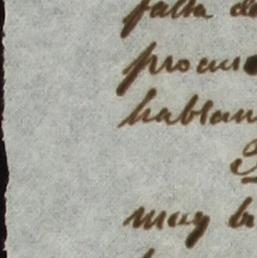 falta de
procur
hablan
muy b